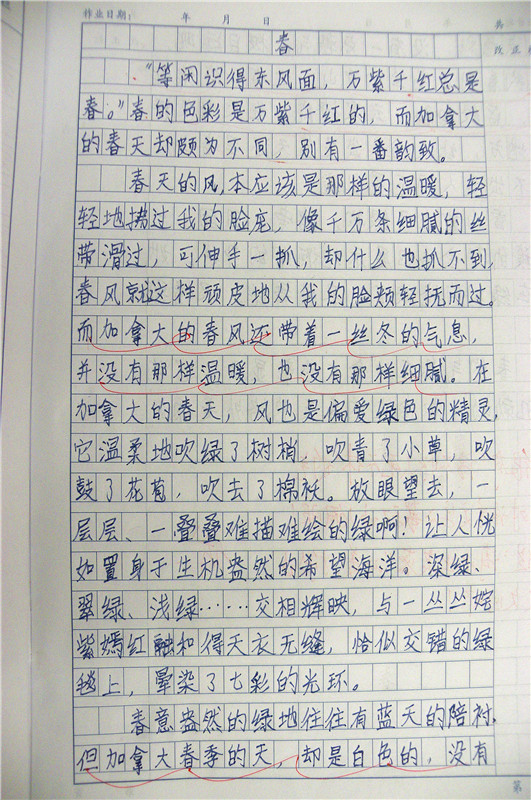 作业日期： 年 月 日 共
改正
春
“等闲识得东风面，万紫千红总是
春。”春的色彩是万紫千红的，而加拿大
的春天却颇为不同，别有一番韵致。
春天的风本应该是那样的温暖，轻
轻地拂过我的脸庞，像千万条细腻的丝
带滑过，可伸手一抓，却什么也抓不到，
春风就这样顽皮地从我的脸颊轻抚而过。
而加拿大的春风还带着一丝冬的气息，
并没有那样温暖，也没有那样细腻。在
加拿大的春天，风也是偏爱绿色的精灵，
它温柔地吹绿了树梢，吹青了小草，吹
鼓了花苞，吹去了棉袄。放眼望去，一
层层、一叠叠难描难绘的绿啊！让人恍
如置身于生机盎然的希望海洋。深绿、
翠绿、浅绿……交相辉映，与一丛丛姹
紫嫣红融和得天衣无缝，恰似交错的绿
毯上，晕染了七彩的光环。
春意盎然的绿地往往有蓝天的陪衬，
但加拿大春季的天，却是白色的，没有
第